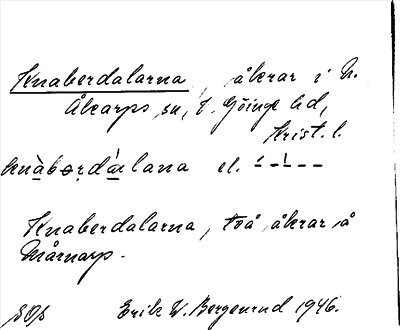 Knaberdalarna, åkrar i N.
Åkarps sn, V. Göinge hd,
Krist. l.
knàbərdálana el. –́ – –̀ – –
Knaberdalarna, två åkrar å
Mårnarp.
Erik W. Bergenrud 1946.